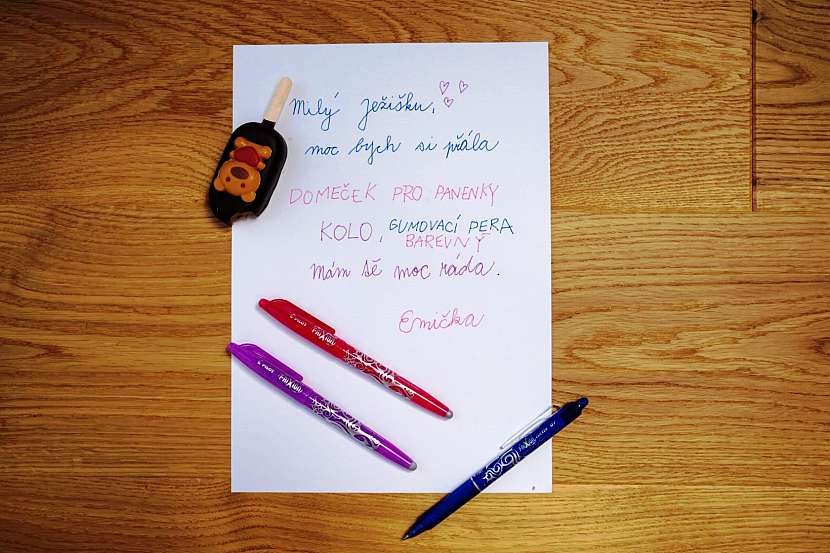 Milý Ježišku,
moc bych si přála
DOMEČEK PRO PANENKY
KOLO, GUMOVACÍ PERA
BAREVNÝ
Mám tě moc ráda.
Emička
PILOT FRIXION
PILOT FRIXION